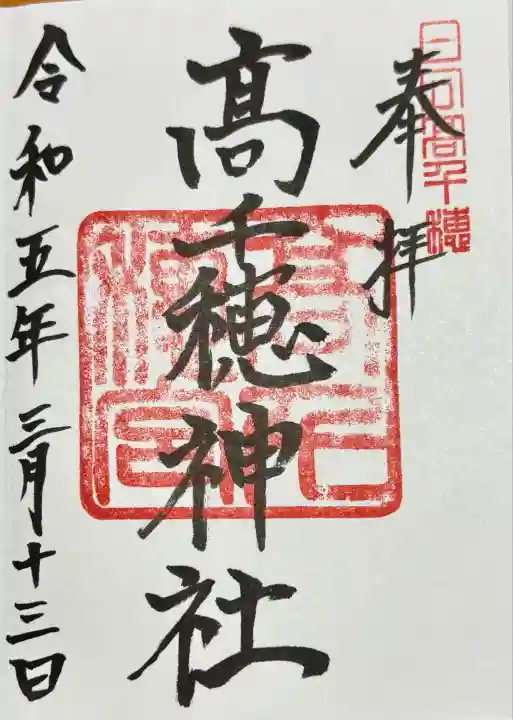 奉拝
日向高千穂
髙千穂神社
令和五年三月十三日